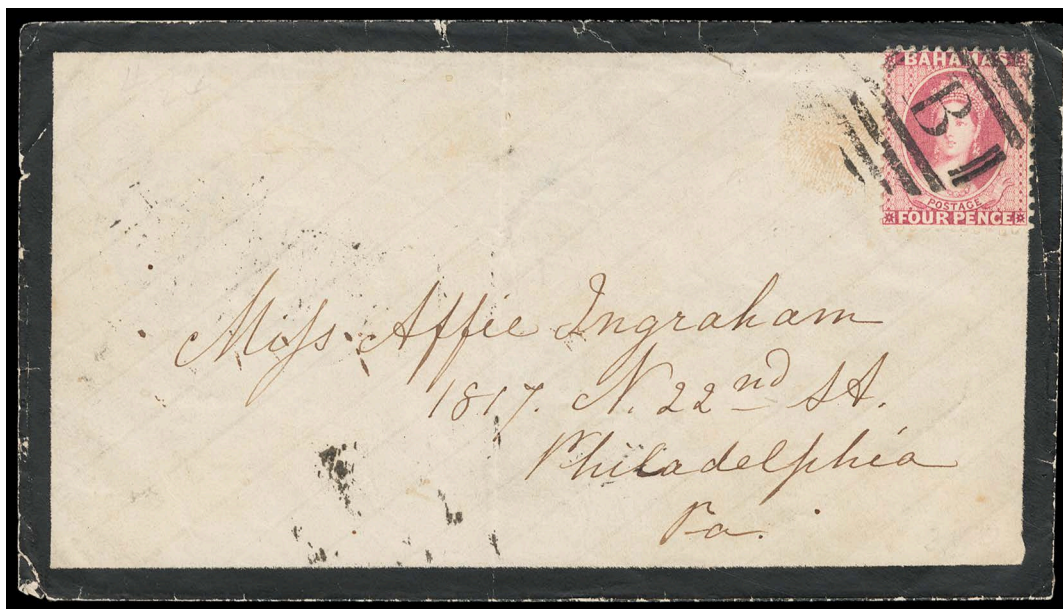 BAHAMAS
B
POSTAGE
FOUR PENCE
Miss Affie Ingraham
1817. N. 22nd St.
Philadelphia
Pa.